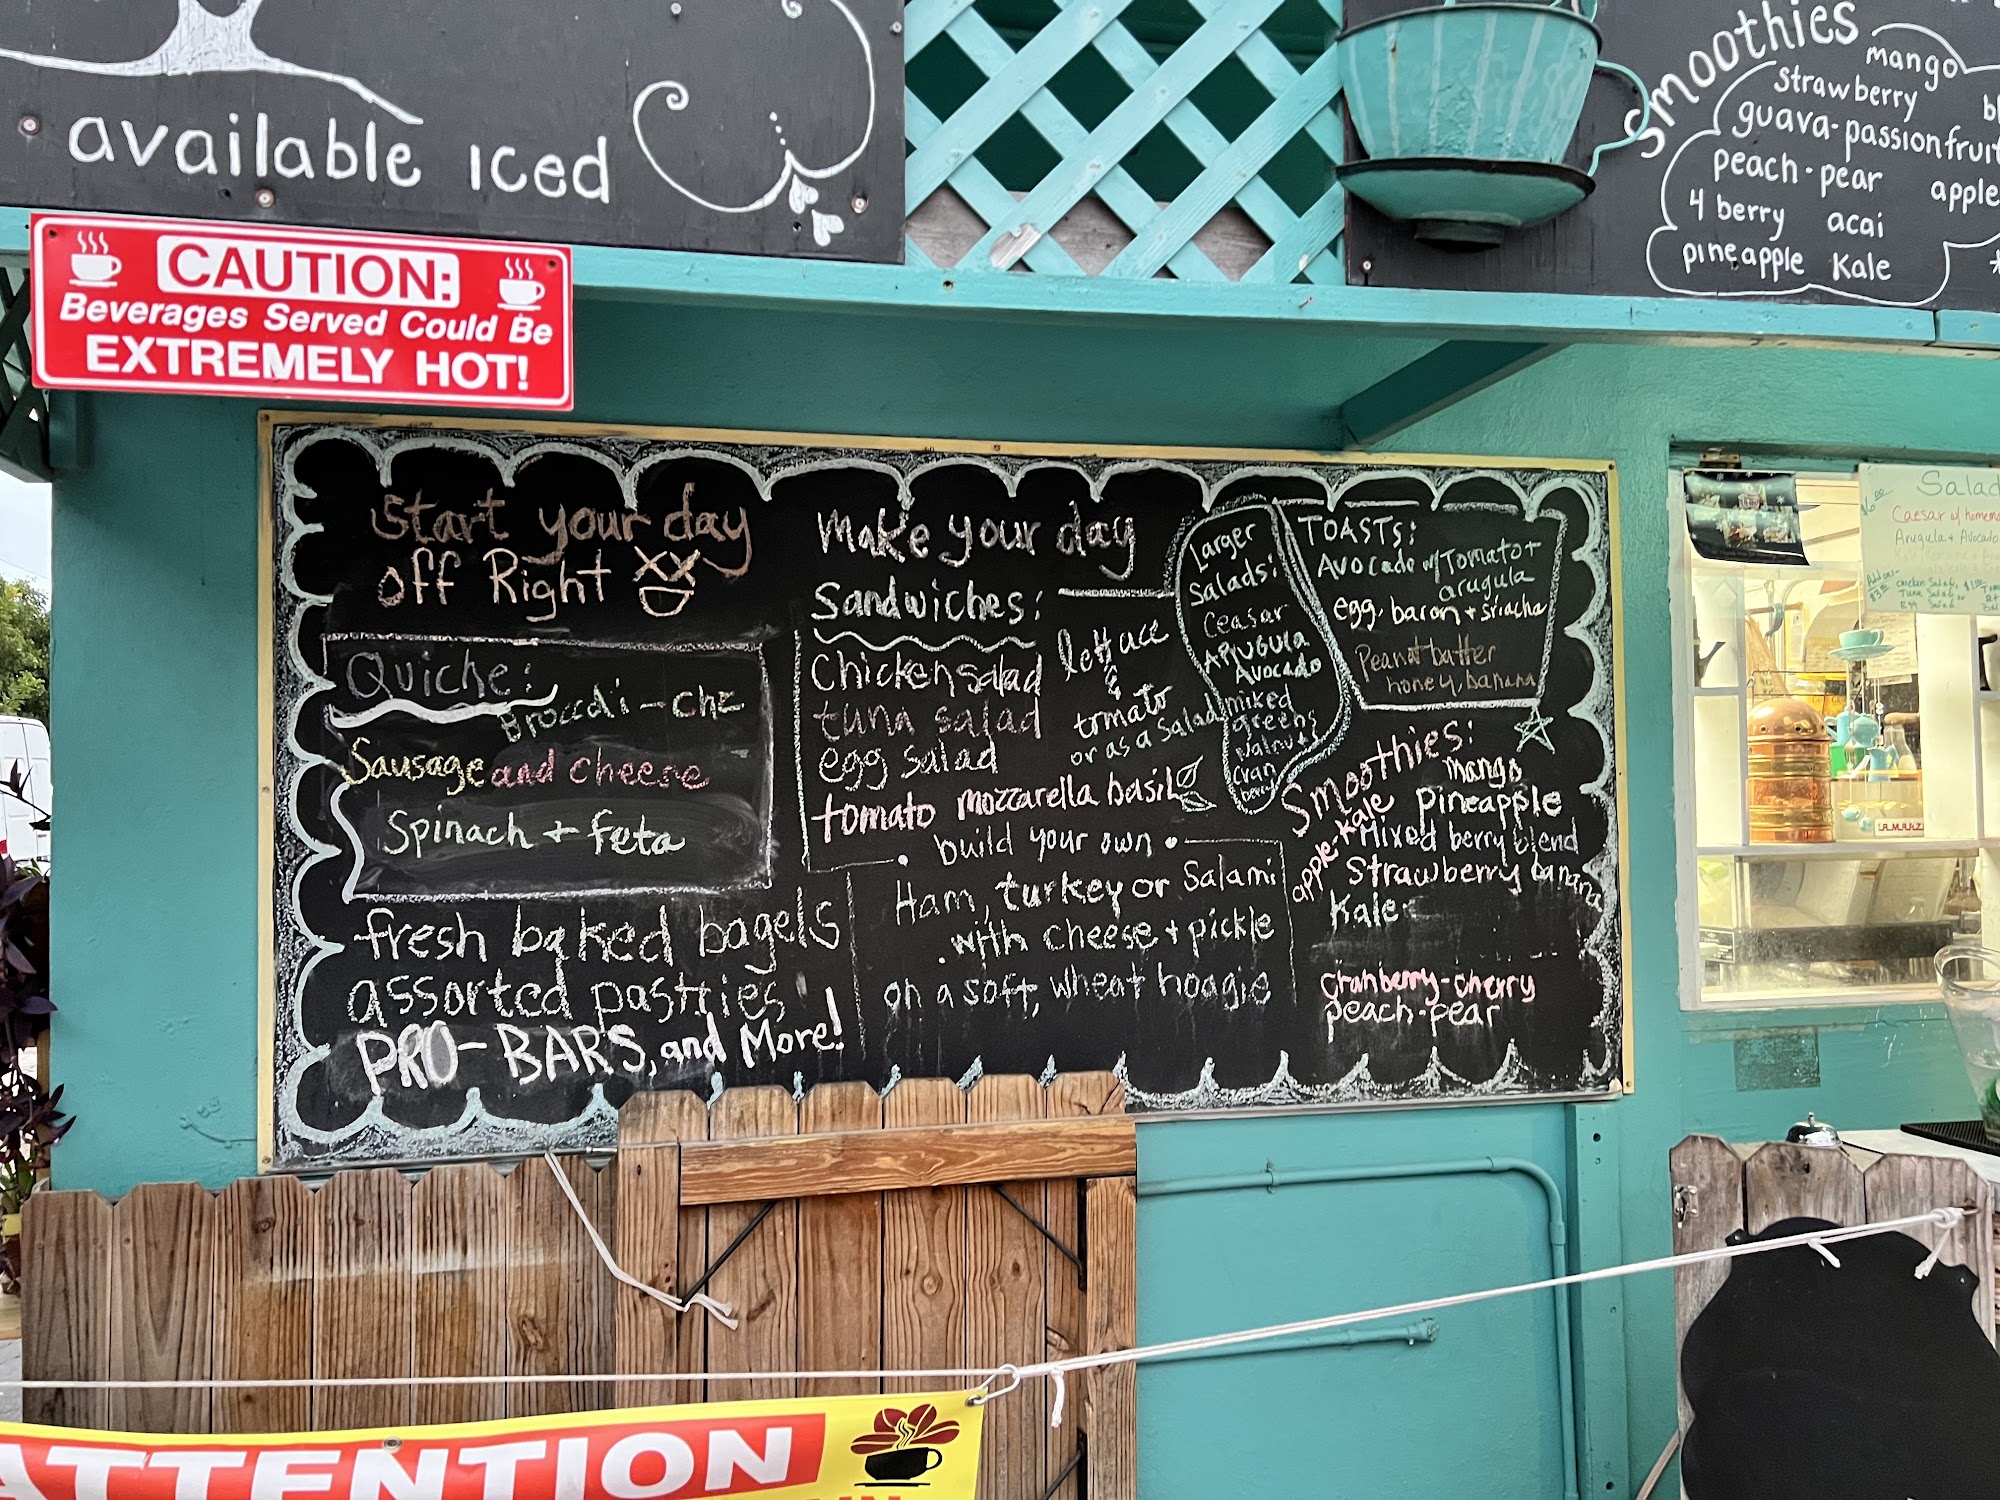 available iced
Smoothies
mango
strawberry
guava-passionfruit
peach-pear apple
4 berry acai
pineapple Kale
CAUTION:
Beverages Served Could Be
EXTREMELY HOT!
Start your day
off Right
Quiche:
Broccoli - che
Sausage and cheese
Spinach + feta
fresh baked bagels
assorted pastries
PRO-BARS, and More!
Make your day
Sandwiches:
Chicken salad
tuna salad
egg salad
tomato mozzarella basil
lettace
&
tomato
or as a Salad
• build your own •
Ham, turkey or Salami
with cheese + pickle
on a soft, wheat hoagie
Larger
Salads:
Ceasar
ARUGULA
Avocado
mixed
greens
walnuts
cran
berry
TOASTS:
Avocado w/ Tomato +
arugula
egg, bacon + sriacha
Peanut batter
honey, banana
Smoothies:
mango
apple-kale pineapple
Mixed berry blend
Strawberry banana
Kale
cranberry-cherry
peach-pear
Salad
$6.00
Caesar w/ homema
Arugula + Avocado
Add on-
chicken Salad,
Tuna Salad, or
Egg Salad
ATTENTION